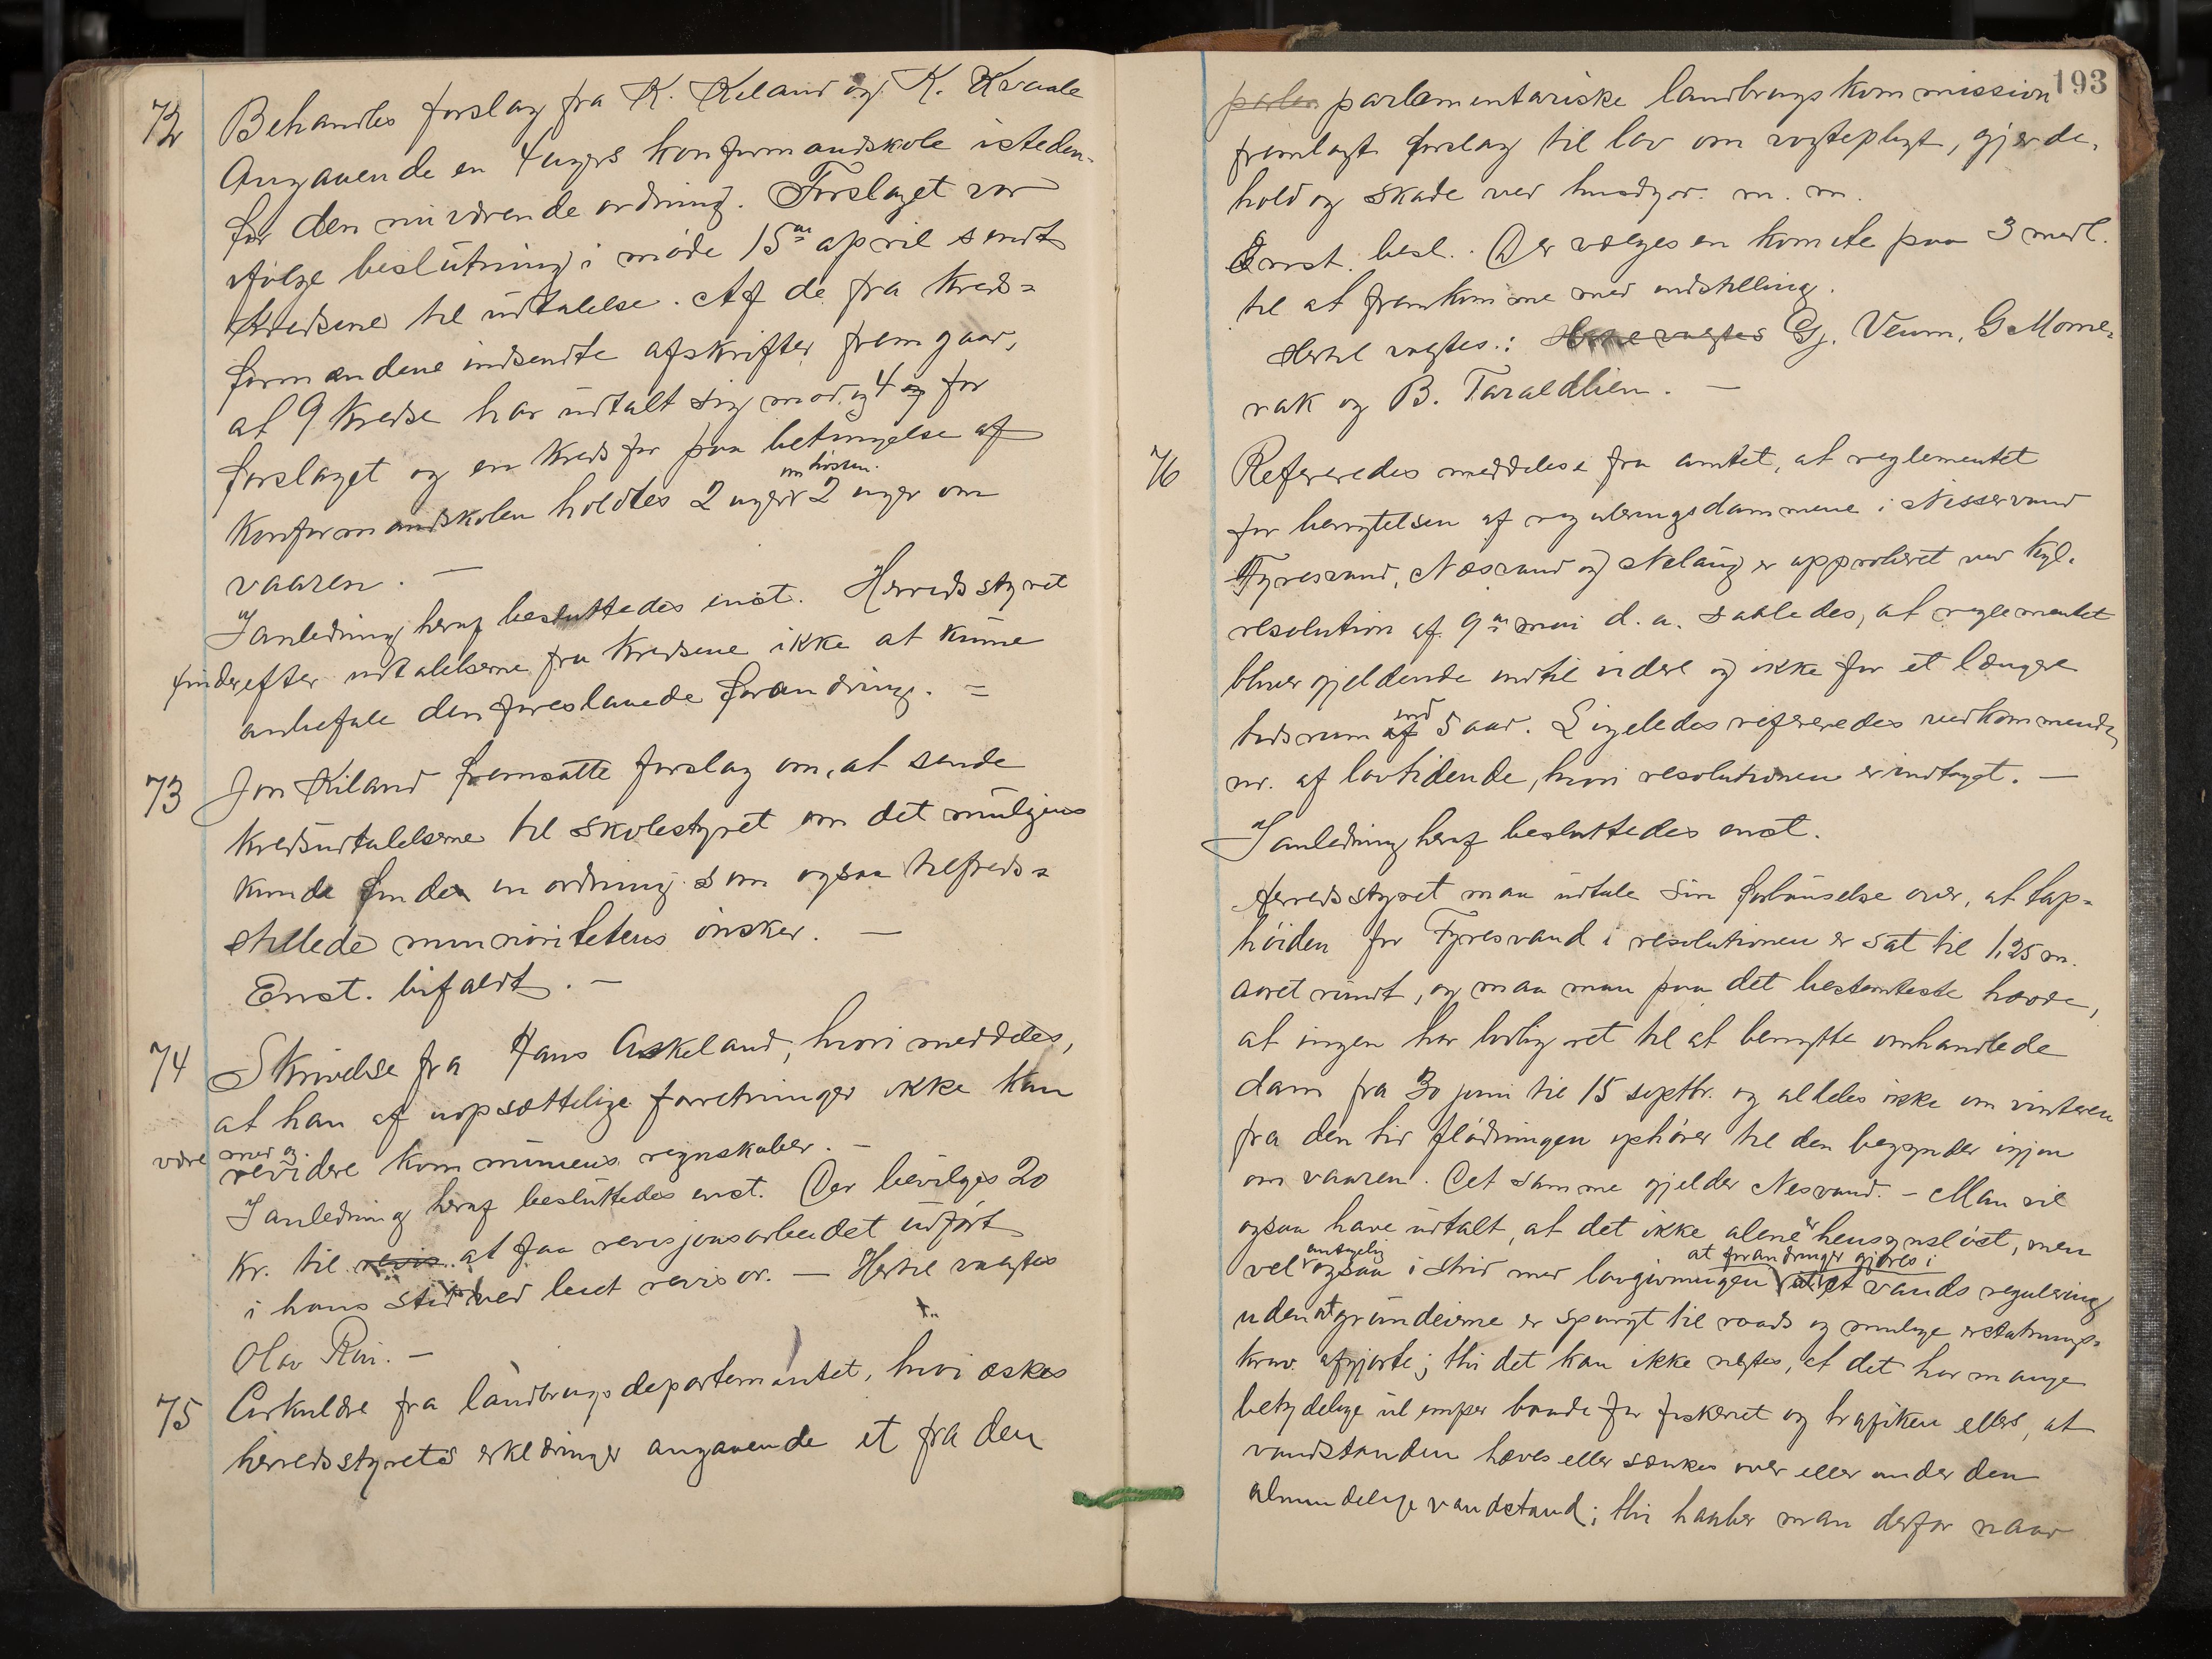 72 Behandles forslag fra K. Kiland og K. Kraale
Angaaende en 4 ugers konfirmandskole isteden-
for den nuværende ordning. Forslaget var
ifølge beslutning i møde 15de april sendt
kredsene til udtalelse. Af de fra kreds=
formændene indsendte afskrifter fremgaar,
at 9 kredse har udtalt sig mod og 4 for
forslaget og en kreds for paa betingelse af
om høsten.
Konfirmandskolen holdtes 2 uger 2 uger om
vaaren. —
I anledning heraf besluttedes enst. Herredsstyret
finder efter udtalelserne fra kredsene ikke at kunne
anbefale den foreslaaede forandring. =
73 Jon Kiland fremsatte forslag om, at sende
kredsudtalelserne til skolestyret om det muligens
kunde finde en ordning som ogsaa tilfreds=
stillede minnoritetens ønsker. —
Enst. bifaldt. —
74 Skrivelse fra Hans Askeland, hvori meddeles,
at han af uopsættelige forretninger ikke kan
være med og
revidere kommunens regnskaber. —
I anledning heraf besluttedes enst. Der bevilges 20
kr. til revis. at faa revisjonsarbeidet udført
i hans sted ved leiet revisor. — Hertil valgtes
Olav Rui. —
75 Cirkulære fra landbrugsdepartementet, hvori æskes
herredsstyrets erklæringer angaaende et fra den
193
parlem parlamentariske landbrugskommission
fremlagt forslag til lov om vogtepligt, gjerde-
hold og skade ved husdyr m. m.
Enst. besl. Der vælges en komite paa 3 medl.
til at fremkomme med indstilling.
Hertil valgtes: Gj. Veum, G Mome-
rak og B. Taraldlien. —
76 Refereredes meddelelse fra amtet, at reglementet
for benyttelsen af reguleringsdammene i Nisservand
Fyresvand, Næsvand og Nelaug er approberet ved kgl.
resolution af 9de mai d. a. saaledes, at reglementet
bliver gjeldende indtil videre og ikke for et længere
end
tidsrum af 5 aar. Ligeledes refereredes vedkommende
nr. af lovtidende, hvori resolutionen er indtaget. —
I anledning heraf besluttedes enst.
Herredsstyret maa udtale sin forbauselse over, at tap=
høiden for Fyresvand i resolutionen er sat til 1,25 m.
aaret rundt, og maa man paa det bestemteste hævde,
at ingen har lovlig ret til at benytte omhandlede
dam fra 30 juni til 15 septbr. og aldeles ikke om vinteren
fra den tid flødningen ophører til den begynder igjen
om vaaren. Det samme gjelder Nesvand. – Man vil
ogsaa have udtalt, at det ikke alene er hensynsløst, men
antagelig at forandringer gjøres i
vel ogsaa i strid med lovgivningen et vands regulering
uden at grundeierne er spurgt til raads og mulige erstatnings=
krav afgjorte; thi det kan ikke negtes, at det har mange
betydelige ulemper baade for fiskeriet og trafiken ellers, at
vandstanden hæves eller sænkes over eller under den
almindelige vandstand; thi haaber man derfor naar